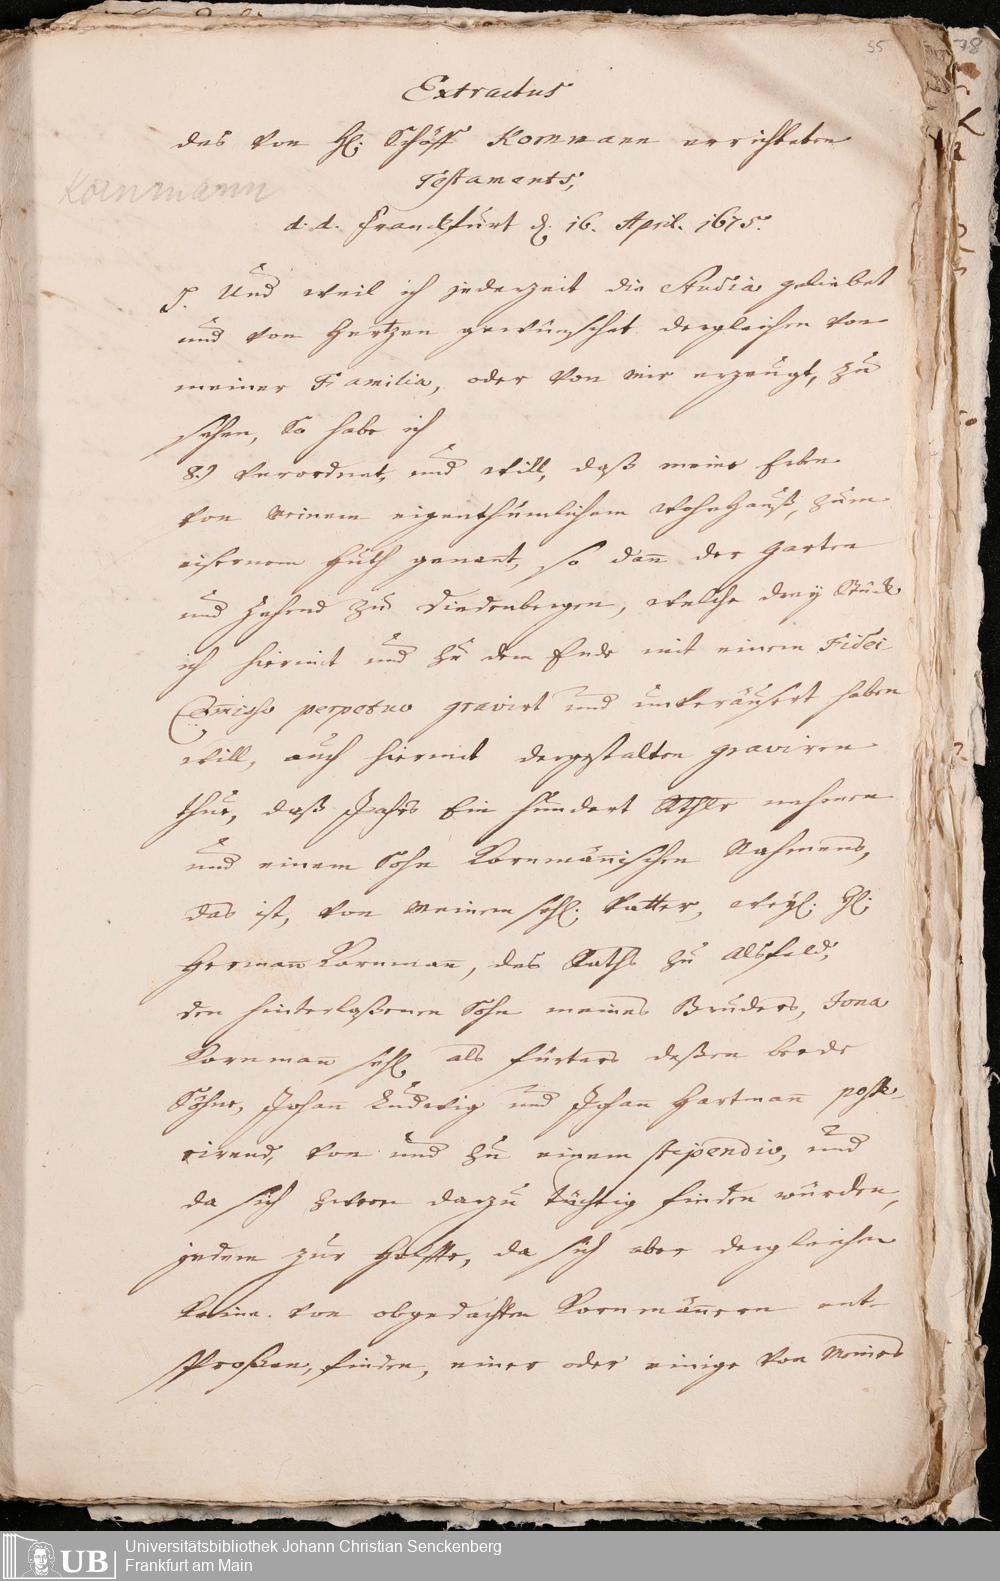 55
78
Extractus
des von H. Schöff Kornmann errichteten
Kornmann
Testaments,
d. d. Franckfurt d. 16. April. 1675.
J. Und weil ich jederzeit die Studia geliebet
und von Hertzen gewünschet dergleichen von
meiner Familia, oder von mir erzeugt, zu
sehen, So habe ich
8.) verordnet, und will, daß meine Erben
von meinem eigenthümlichem Wohnhauß, zum
eisernen Huth genant, so dann der Garten
und Zehend zu Diedenbergen, welche drey Stück
ich hiermit und zu dem Ende mit einem Fidei
Com̃isso perpetuo gravirt und unveräusert haben
will, auch hiermit dergestalten graviren
thue, daß Jahrs Ein hundert Rthlr nehmen
und einem Sohn Kornmännischen Nahmens,
das ist, von meinem sehl. Vatter, weyl. H.
Herman̄ Kornman̄, des Raths zu Alsfeld,
den hinterlaßenen Sohn meines Bruders, Jona
Kornman̄ sehl. als fürters deßen beede
Söhne, Johan̄ Ludwig und Johan̄ Hartman̄ poste-
rirend, von und zu einem stipendio, und
da sich zween darzu tüchtig finden würden,
jedem zur Helffte, da sich aber dergleichen
keine von obgedachten Kornmän̄ern ent-
sproßen, finden, einer oder einige von meines
UB
Universitätsbibliothek Johann Christian Senckenberg
Frankfurt am Main